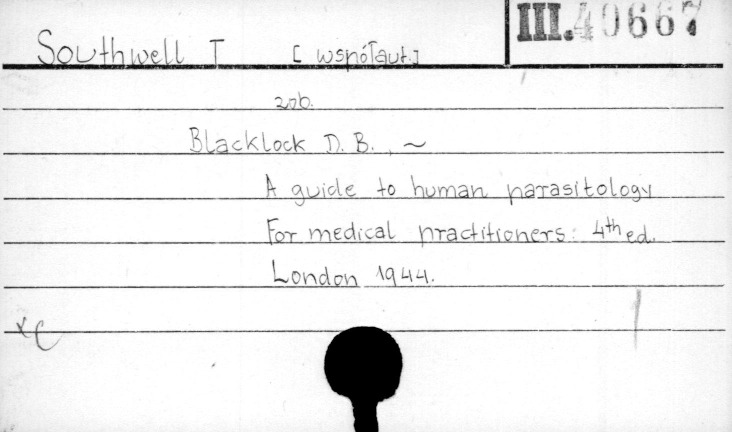 III.40667
Southwell T [współaut.]
zob.
Blacklock D. B., ~
A guide to human parasitology
For medical practitioners: 4th ed.
London 1944.